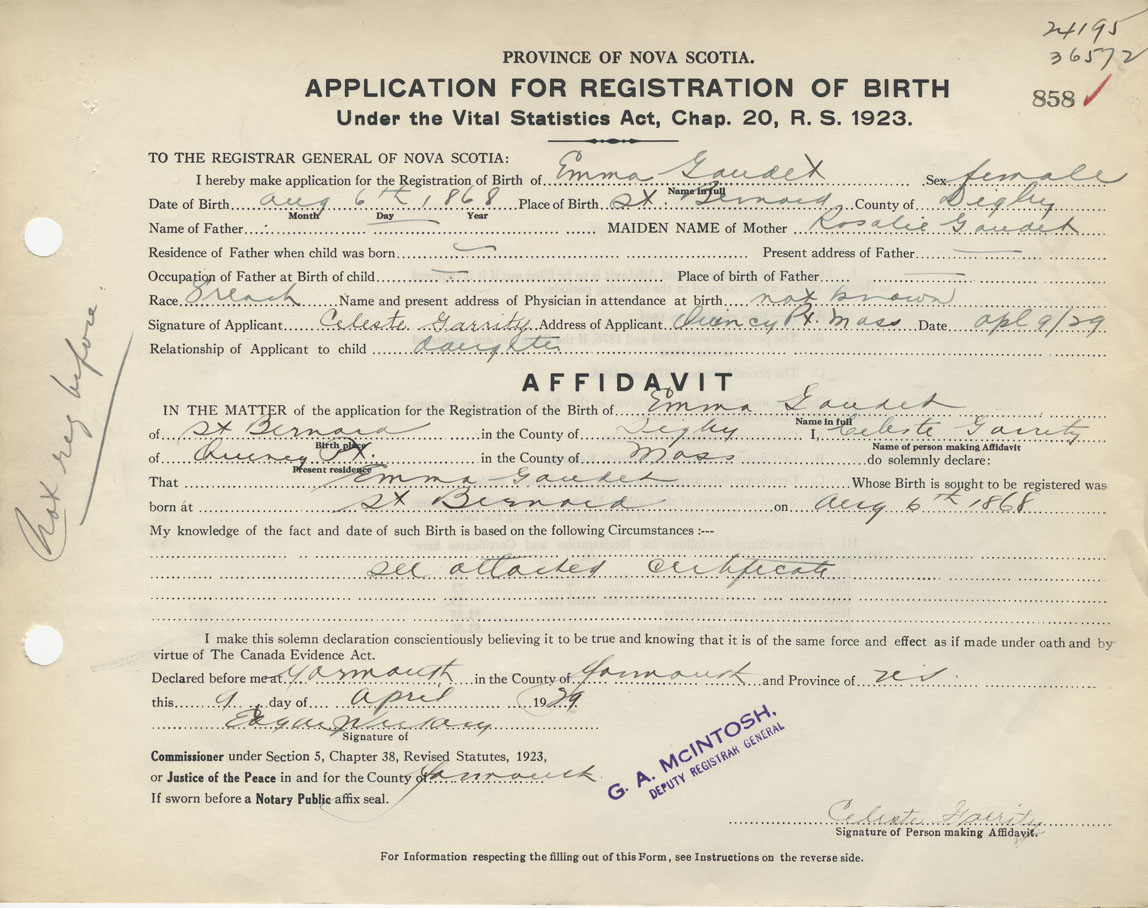 24195
36572
858
PROVINCE OF NOVA SCOTIA.
APPLICATION FOR REGISTRATION OF BIRTH
Under the Vital Statistics Act, Chap. 20, R. S. 1923.
TO THE REGISTRAR GENERAL OF NOVA SCOTIA:
I hereby make application for the Registration of Birth of Emma Gaudet Sex female
Name in full
Date of Birth Aug 6th 1868 Place of Birth St Bernard County of Digby
Month Day Year
Name of Father MAIDEN NAME of Mother Rosalie Gaudet
Residence of Father when child was born Present address of Father
Occupation of Father at Birth of child Place of birth of Father
Race French Name and present address of Physician in attendance at birth not known
Signature of Applicant Celeste Garrity Address of Applicant Quincy Pt. Mass Date Apl 9/29
Relationship of Applicant to child daughter
AFFIDAVIT
IN THE MATTER of the application for the Registration of the Birth of Emma Gaudet
Name in full
of St Bernard in the County of Digby I, Celeste Garrity
Birth place Name of person making Affidavit
of Quincy Pt. in the County of Mass do solemnly declare:
Present residence
That Emma Gaudet Whose Birth is sought to be registered was
born at St Bernard on Aug 6th 1868
My knowledge of the fact and date of such Birth is based on the following Circumstances :---
see attached certificate
I make this solemn declaration conscientiously believing it to be true and knowing that it is of the same force and effect as if made under oath and by
virtue of The Canada Evidence Act.
Declared before me at Yarmouth in the County of Yarmouth and Province of
this 9 day of April 1929
Edgar
Signature of
Commissioner under Section 5, Chapter 38, Revised Statutes, 1923,
or Justice of the Peace in and for the County of Yarmouth
If sworn before a Notary Public affix seal.
G. A. MCINTOSH,
DEPUTY REGISTRAR GENERAL
Celeste Garrity
Signature of Person making Affidavit.
For Information respecting the filling out of this Form, see Instructions on the reverse side.
Not reg before.